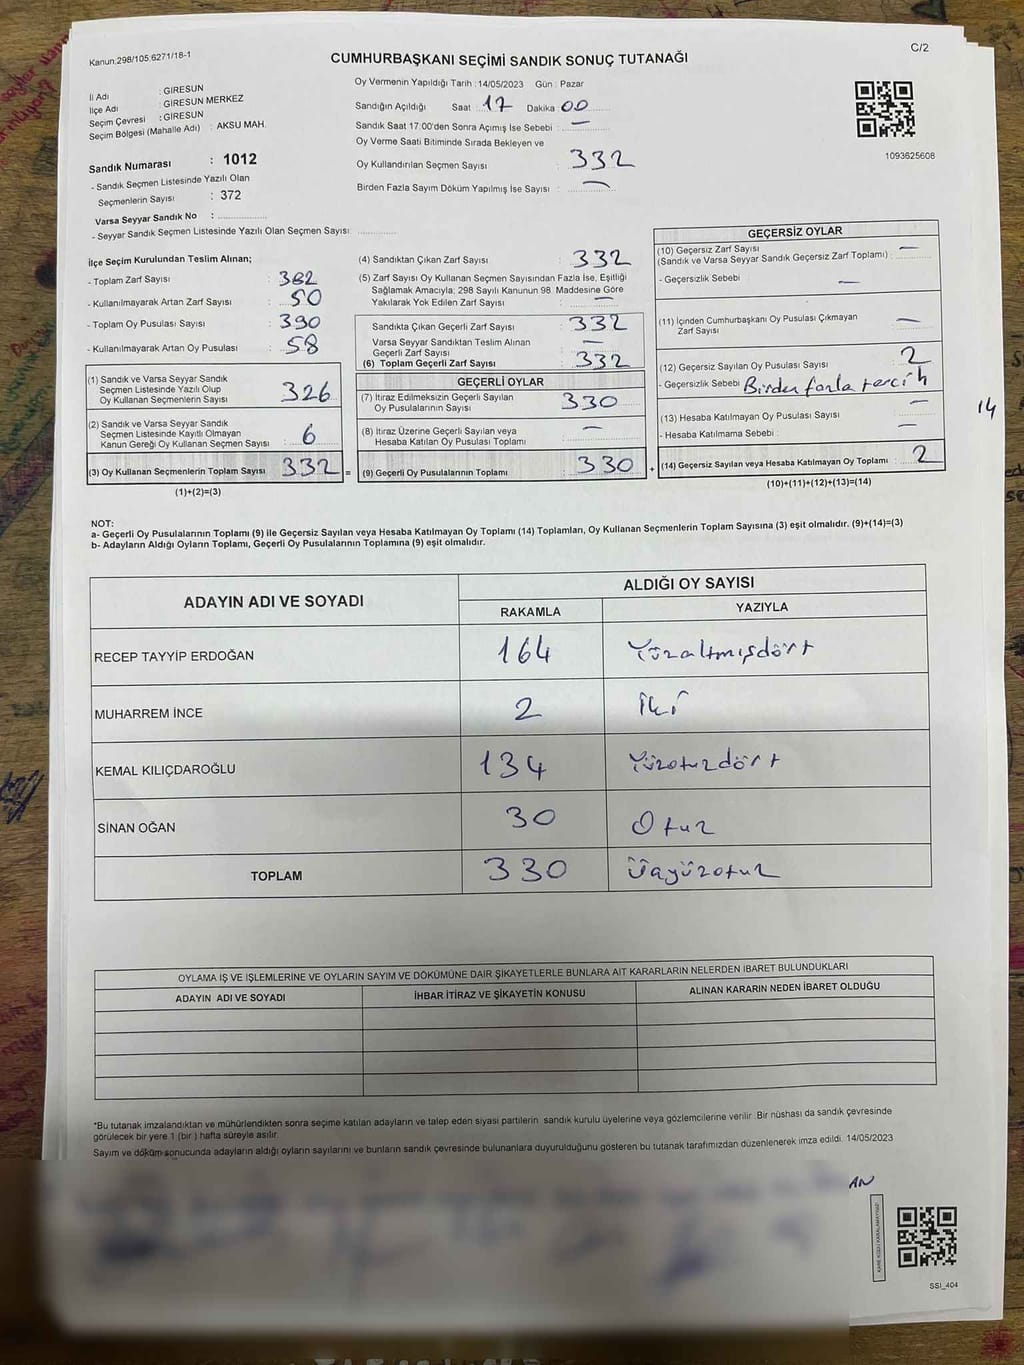 Kanun.298/105;6271/18-1
C/2
CUMHURBAŞKANI SEÇİMİ SANDIK SONUÇ TUTANAĞI
İl Adı : GİRESUN
İlçe Adı : GİRESUN MERKEZ
Seçim Çevresi : GİRESUN
Seçim Bölgesi (Mahalle Adı) : AKSU MAH.
Sandık Numarası : 1012
- Sandık Seçmen Listesinde Yazılı Olan
Seçmenlerin Sayısı : 372
Varsa Seyyar Sandık No :
- Seyyar Sandık Seçmen Listesinde Yazılı Olan Seçmen Sayısı:
Oy Vermenin Yapıldığı Tarih : 14/05/2023 Gün : Pazar
Sandığın Açıldığı Saat : 17 Dakika : 00
Sandık Saat 17:00'den Sonra Açımış İse Sebebi : —
Oy Verme Saati Bitiminde Sırada Bekleyen ve
Oy Kullandırılan Seçmen Sayısı : 332
Birden Fazla Sayım Döküm Yapılmış İse Sayısı : —
1093625608
İlçe Seçim Kurulundan Teslim Alınan;
- Toplam Zarf Sayısı : 382
- Kullanılmayarak Artan Zarf Sayısı : 50
- Toplam Oy Pusulası Sayısı : 390
- Kullanılmayarak Artan Oy Pusulası : 58
(1) Sandık ve Varsa Seyyar Sandık
Seçmen Listesinde Yazılı Olup
Oy Kullanan Seçmenlerin Sayısı : 326
(2) Sandık ve Varsa Seyyar Sandık
Seçmen Listesinde Kayıtlı Olmayan
Kanun Gereği Oy Kullanan Seçmen Sayısı : 6
(3) Oy Kullanan Seçmenlerin Toplam Sayısı : 332 =
(1)+(2)=(3)
(4) Sandıktan Çıkan Zarf Sayısı : 332
(5) Zarf Sayısı Oy Kullanan Seçmen Sayısından Fazla İse, Eşitliği
Sağlamak Amacıyla; 298 Sayılı Kanunun 98. Maddesine Göre
Yakılarak Yok Edilen Zarf Sayısı : —
Sandıkta Çıkan Geçerli Zarf Sayısı : 332
Varsa Seyyar Sandıktan Teslim Alınan
Geçerli Zarf Sayısı : —
(6) Toplam Geçerli Zarf Sayısı : 332
GEÇERLİ OYLAR
(7) İtiraz Edilmeksizin Geçerli Sayılan
Oy Pusulalarının Sayısı : 330
(8) İtiraz Üzerine Geçerli Sayılan veya
Hesaba Katılan Oy Pusulası Toplamı : —
(9) Geçerli Oy Pusulalarının Toplamı : 330 +
GEÇERSİZ OYLAR
(10) Geçersiz Zarf Sayısı —
(Sandık ve Varsa Seyyar Sandık Geçersiz Zarf Toplamı) :
- Geçersizlik Sebebi : —
(11) İçinden Cumhurbaşkanı Oy Pusulası Çıkmayan
Zarf Sayısı : —
(12) Geçersiz Sayılan Oy Pusulası Sayısı : 2
- Geçersizlik Sebebi : Birden fazla tercih
(13) Hesaba Katılmayan Oy Pusulası Sayısı : —
- Hesaba Katılmama Sebebi : —
(14) Geçersiz Sayılan veya Hesaba Katılmayan Oy Toplamı : 2
(10)+(11)+(12)+(13)=(14)
14
NOT:
a- Geçerli Oy Pusulalarının Toplamı (9) ile Geçersiz Sayılan veya Hesaba Katılmayan Oy Toplamı (14) Toplamları, Oy Kullanan Seçmenlerin Toplam Sayısına (3) eşit olmalıdır. (9)+(14)=(3)
b- Adayların Aldığı Oyların Toplamı, Geçerli Oy Pusulalarının Toplamına (9) eşit olmalıdır.
ADAYIN ADI VE SOYADI
ALDIĞI OY SAYISI
RAKAMLA YAZIYLA
RECEP TAYYİP ERDOĞAN 164 Yüzaltmışdört
MUHARREM İNCE 2 İki
KEMAL KILIÇDAROĞLU 134 Yüzotuzdört
SİNAN OĞAN 30 Otuz
TOPLAM 330 Üçyüzotuz
OYLAMA İŞ VE İŞLEMLERİNE VE OYLARIN SAYIM VE DÖKÜMÜNE DAİR ŞİKAYETLERLE BUNLARA AİT KARARLARIN NELERDEN İBARET BULUNDUKLARI
ADAYIN ADI VE SOYADI İHBAR İTİRAZ VE ŞİKAYETİN KONUSU ALINAN KARARIN NEDEN İBARET OLDUĞU
*Bu tutanak imzalandıktan ve mühürlendikten sonra seçime katılan adayların ve talep eden siyasi partilerin sandık kurulu üyelerine veya gözlemcilerine verilir. Bir nüshası da sandık çevresinde
görülecek bir yere 1 (bir ) hafta süreyle asılır.
Sayım ve döküm sonucunda adayların aldığı oyların sayılarını ve bunların sandık çevresinde bulunanlara duyurulduğunu gösteren bu tutanak tarafımızdan düzenlenerek imza edildi. 14/05/2023
AN
KARE KODU KARALAMAYINIZ!
SSI_404